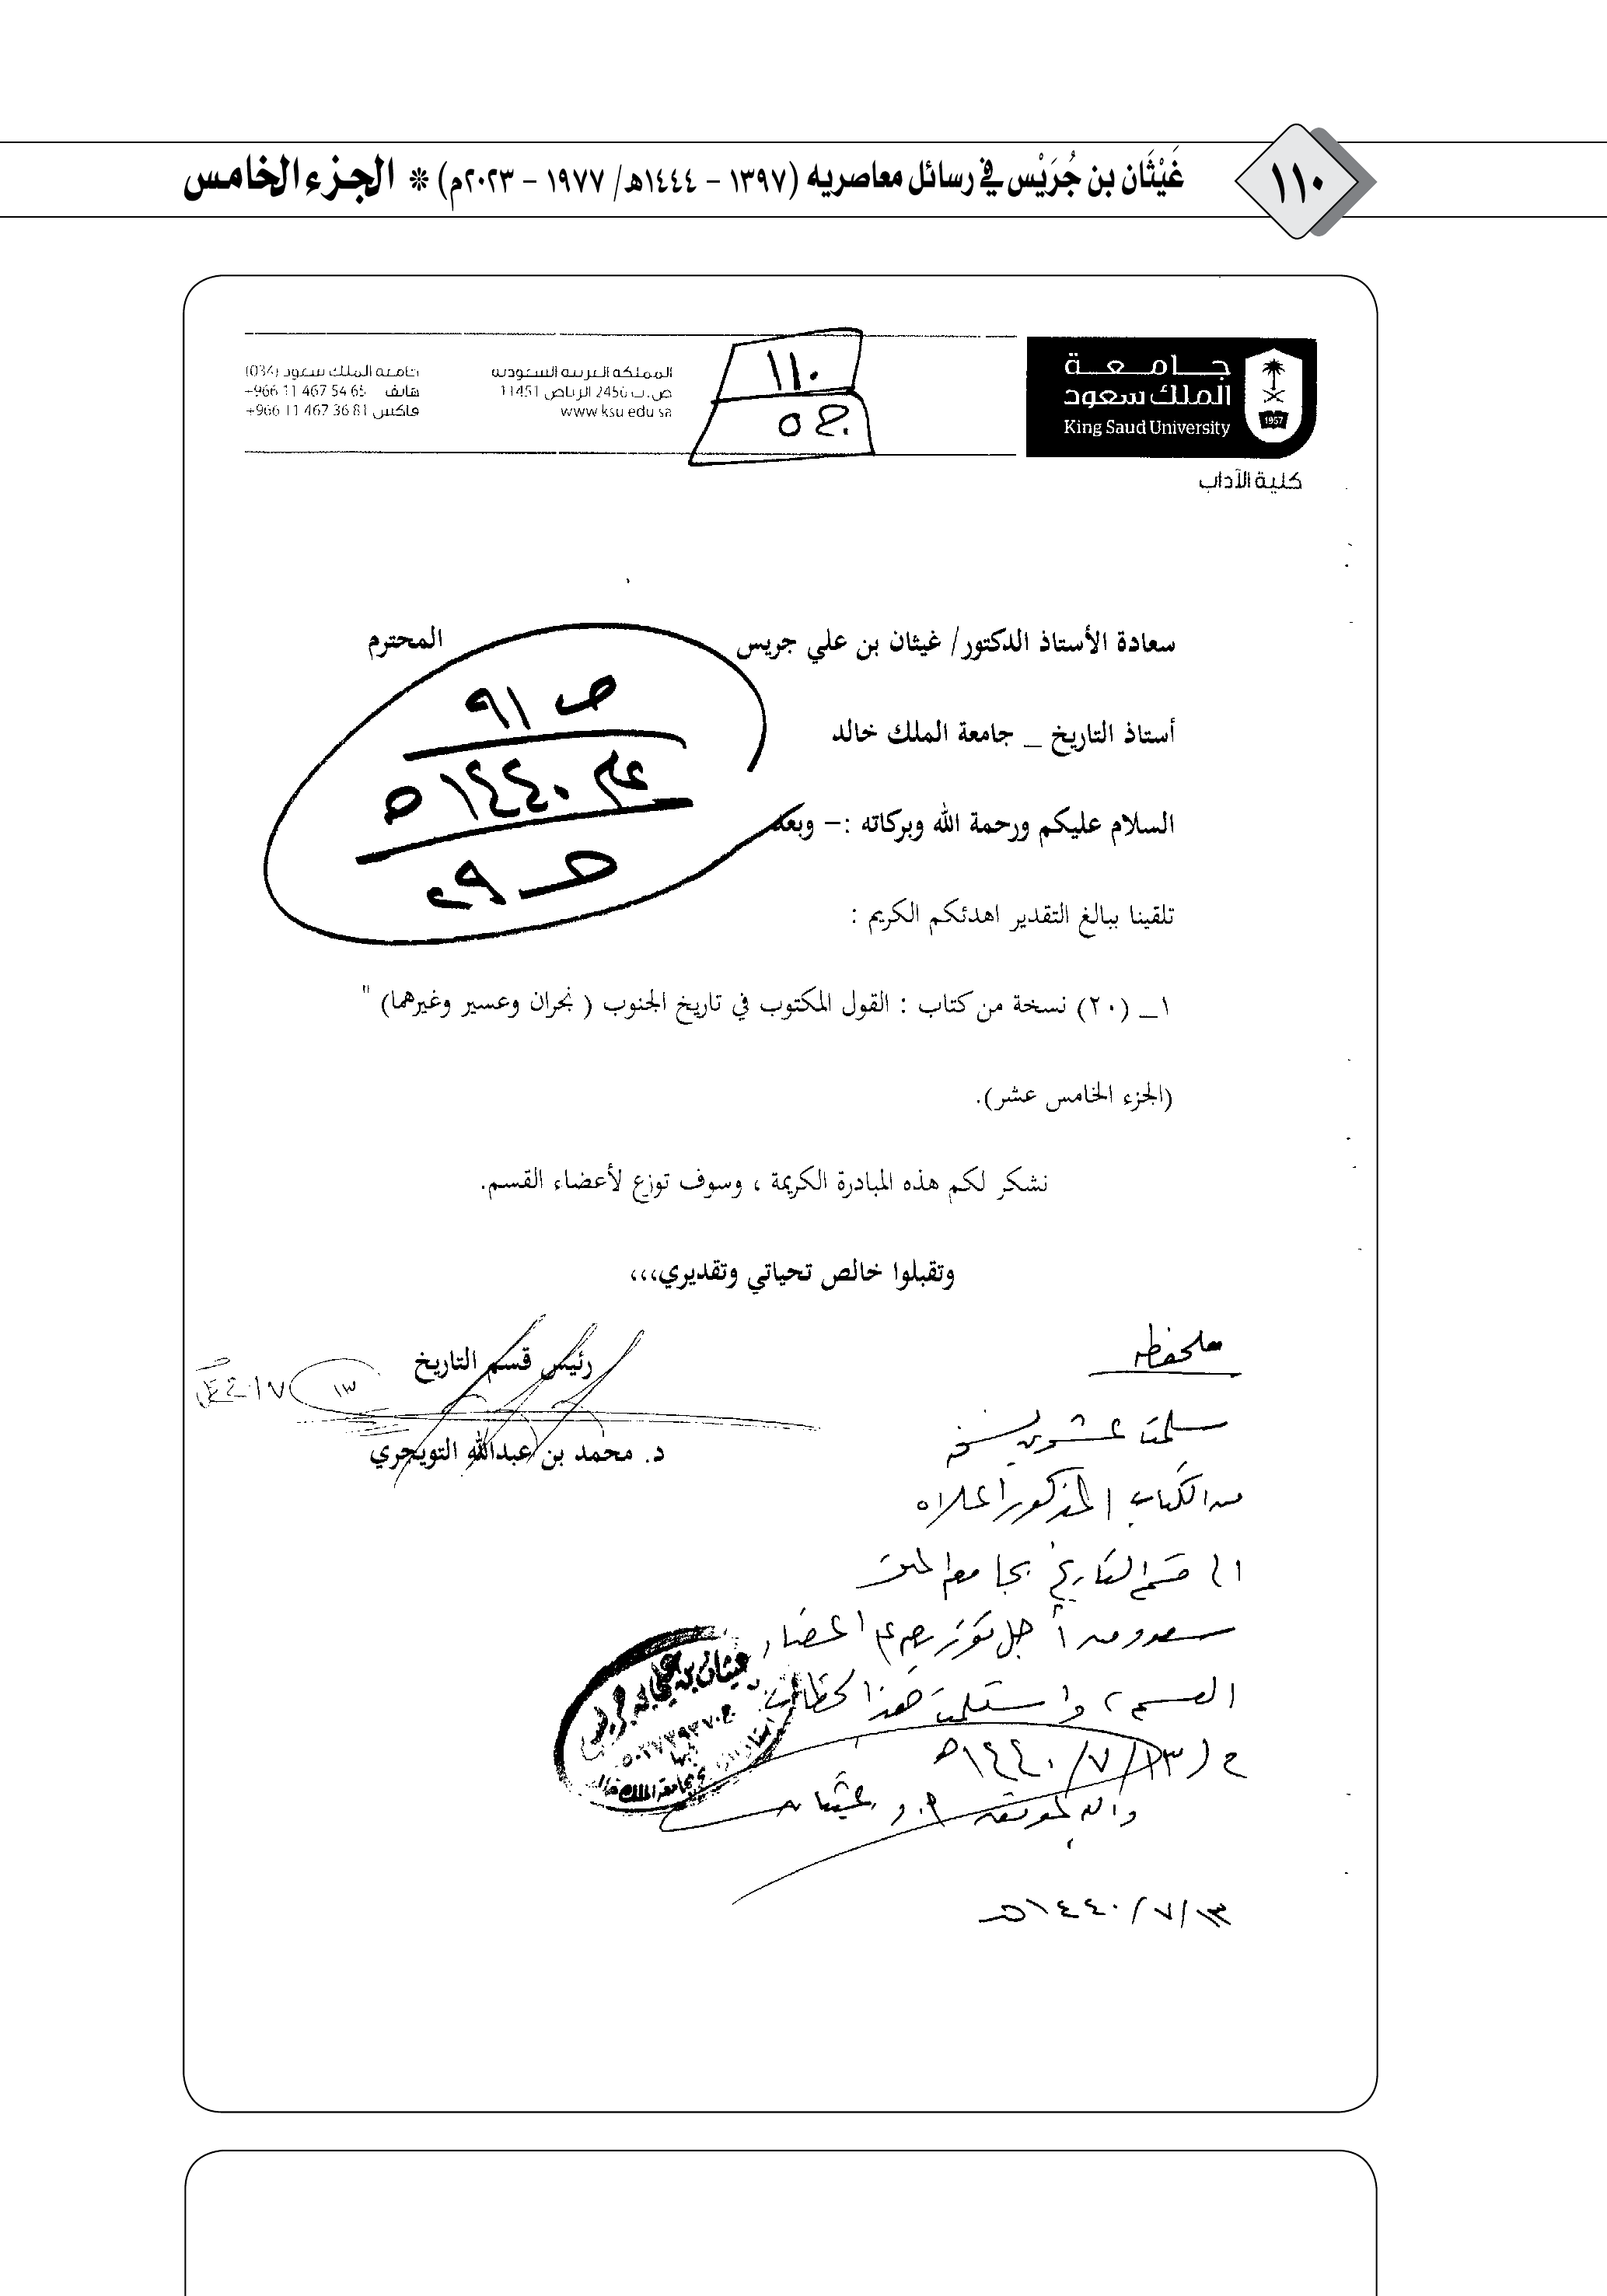 ١١٠
غَيْثَان بن جُرَيْس في رسائل معاصريه (١٣٩٧ - ١٤٤٤هـ/ ١٩٧٧ - ٢٠٢٣م) * الجزء الخامس
جامعة
الملك سعود
King Saud University
1957
كلية الآداب
١١٠
ج ٥
المملكة العربية السعودية
ص.ب 2456 الرياض 11451
www.ksu.edu.sa
جامعة الملك سعود (034)
هاتف +966 11 467 54 65
فاكس +966 11 467 36 81
سعادة الأستاذ الدكتور/ غيثان بن علي جريس المحترم
ص ٩١
عام ١٤٤٠هـ
أستاذ التاريخ _ جامعة الملك خالد
السلام عليكم ورحمة الله وبركاته :- وبعد
تلقينا ببالغ التقدير اهدئكم الكريم :
١_ (٢٠) نسخة من كتاب : القول المكتوب في تاريخ الجنوب ( نجران وعسير وغيرهما) "
(الجزء الخامس عشر).
نشكر لكم هذه المبادرة الكريمة ، وسوف توزع لأعضاء القسم.
وتقبلوا خالص تحياتي وتقديري،،،
رئيس قسم التاريخ
د. محمد بن عبدالله التويجري
ملحفظه
سلمت عشرين نسخة
من الكتاب المذكور اعلاه
الى قسم التاريخ بجامعة الملك
سعود ومن أجل توزيعه على اعضاء
القسم، واستلمت هذا الخطاب
في ١٣/٧/١٤٤٠هـ
والله الموفق، أ.د. غيثان
غيثان بن علي بن جريس
أبها
بجامعة الملك خالد
١٣/٧/١٤٤٠هـ